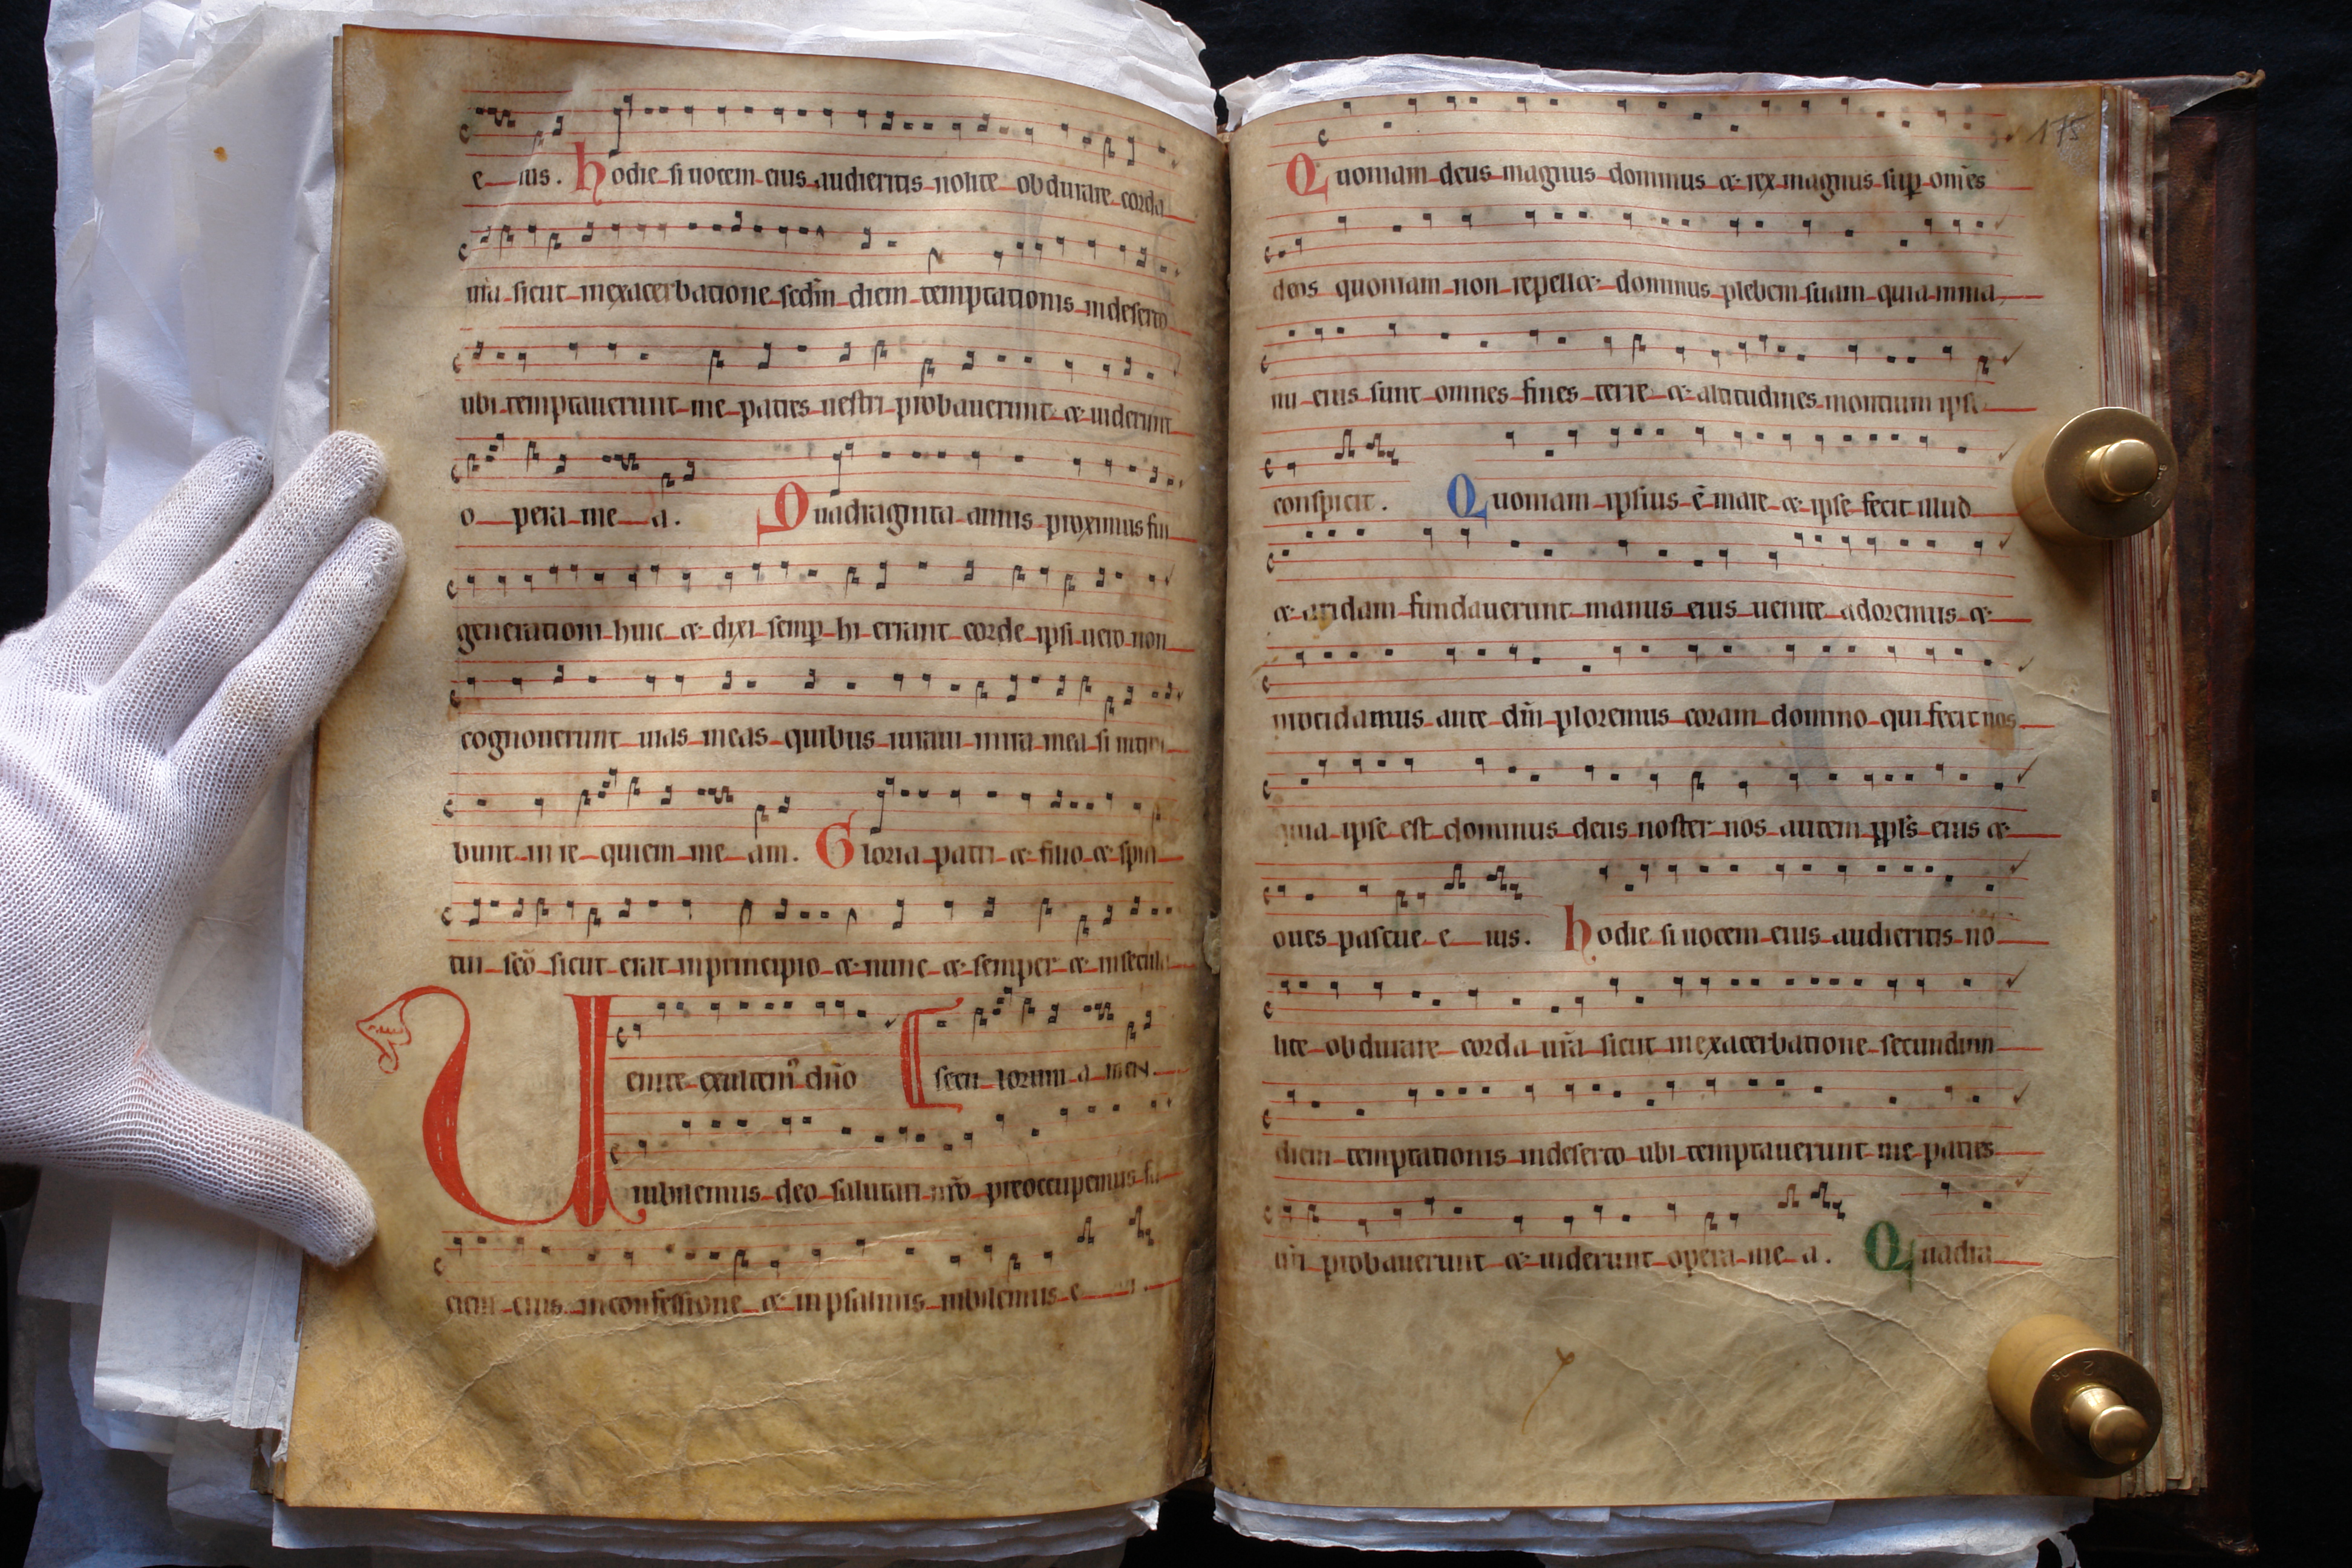 e ius. hodie si uocem eius audieritis nolite obdurare corda
ura sicut inexacerbatione scdm diem temptationis indeserto
ubi temptauerunt me patres uestri probauerunt & uiderunt
o pera me a. Quadraginta annis proximus fui
generationi huic & dixi semp hi errant corde ipsi uero non
cognouerunt uias meas quibus iuraui inira mea si introi
bunt in re quiem me am. Gloria patri & filio & spiri
tui sco sicut erat inprincipio & nunc & semper & insecula
Uenite exultem dno secu lorum a men
iubilemus deo salutari nro preoccupemus fa
ciem eius inconfessione & inpsalmis iubilemus e
175
Quoniam deus magnus dominus & rex magnus sup omes
deos quoniam non repell& dominus plebem suam quia inma
nu eius sunt omnes fines terre & altitudines montium ipse
conspicit. Quoniam ipsius e mare & ipse fecit illud
& aridam fundauerunt manus eius uenite adoremus &
procidamus ante dm ploremus coram domino qui fecit nos
quia ipse est dominus deus noster nos autem ppls eius &
oues pascue e ius. hodie si uocem eius audieritis no
lite obdurare corda ura sicut inexacerbatione secundum
diem temptationis indeserto ubi temptauerunt me patres
uri probauerunt & uiderunt opera me a. Quadra